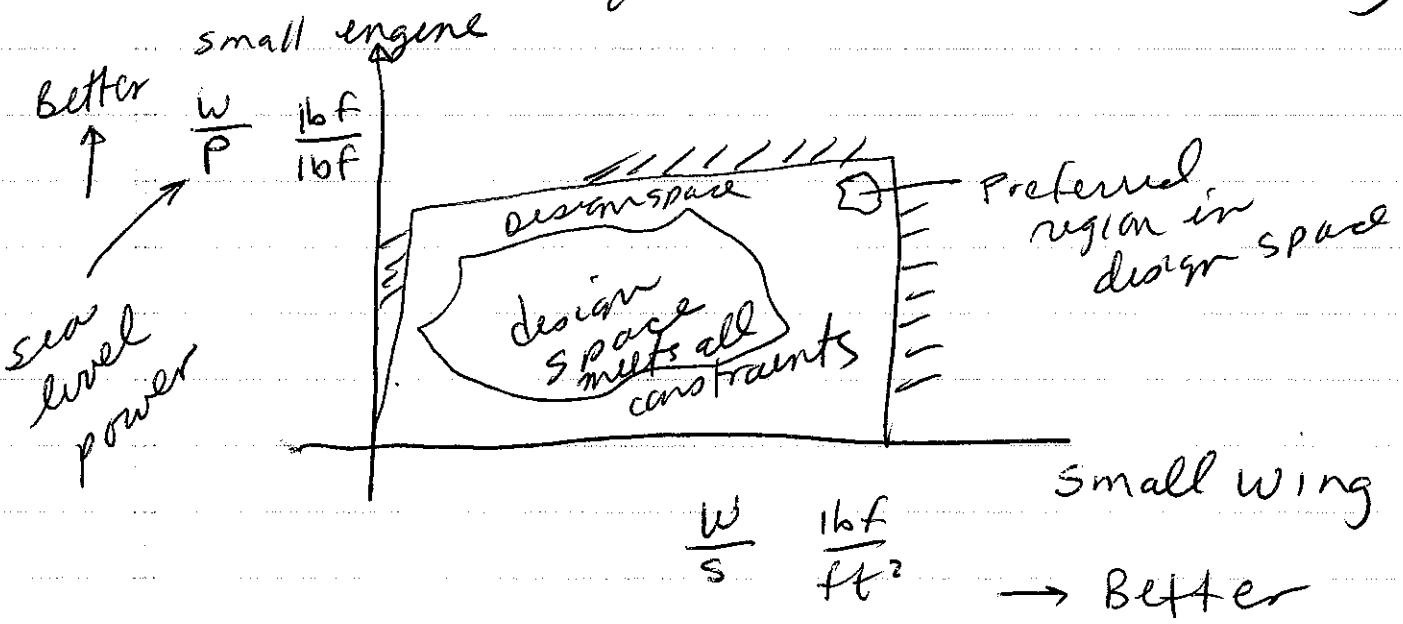 small engine
Better
W/P lbf/lbf
sea
level
power
Design space
design
space
meets all
constraints
Preferred
region in
design space
small wing
W/S lbf/ft²
→ Better